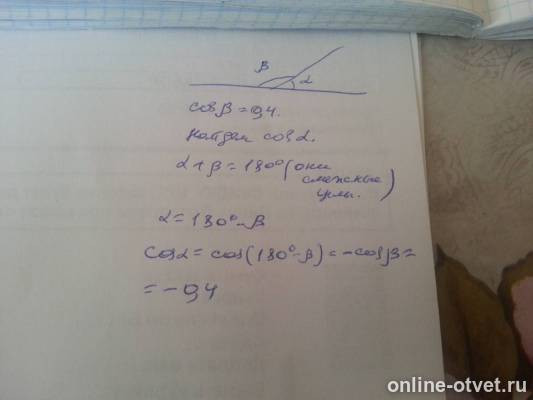 β
α
cosβ = 0,4.
Найдем cosα.
α + β = 180° (они
смежные
углы.)
α = 180° - β
cosα = cos(180° - β) = -cosβ =
= - 0,4
online-otvet.ru